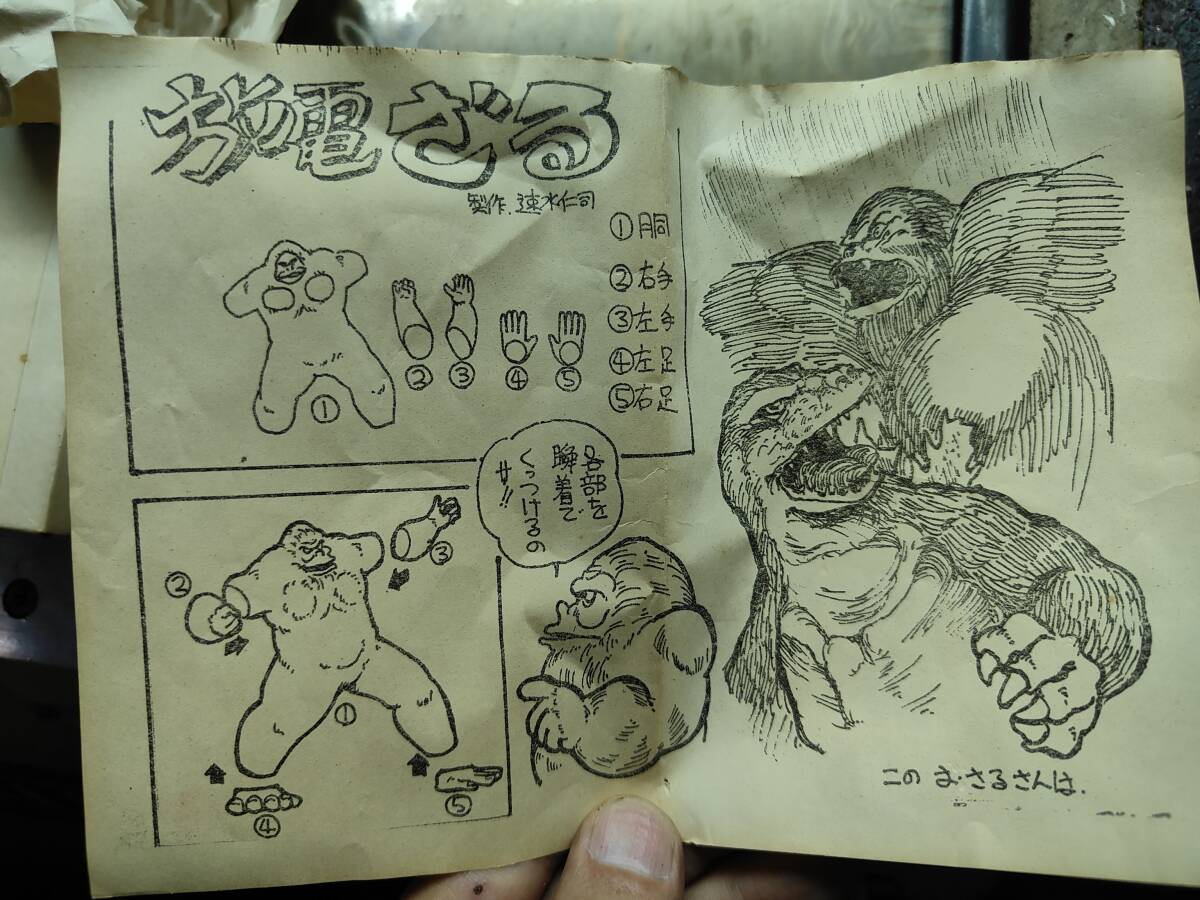 放電ざる
製作.速水仁司
①胴
②右手
③左手
④左足
⑤右足
①
②
③
④
⑤
各部を
瞬着で
くっつけるの
サ!!
②
③
①
④
⑤
このお.さるさんは.